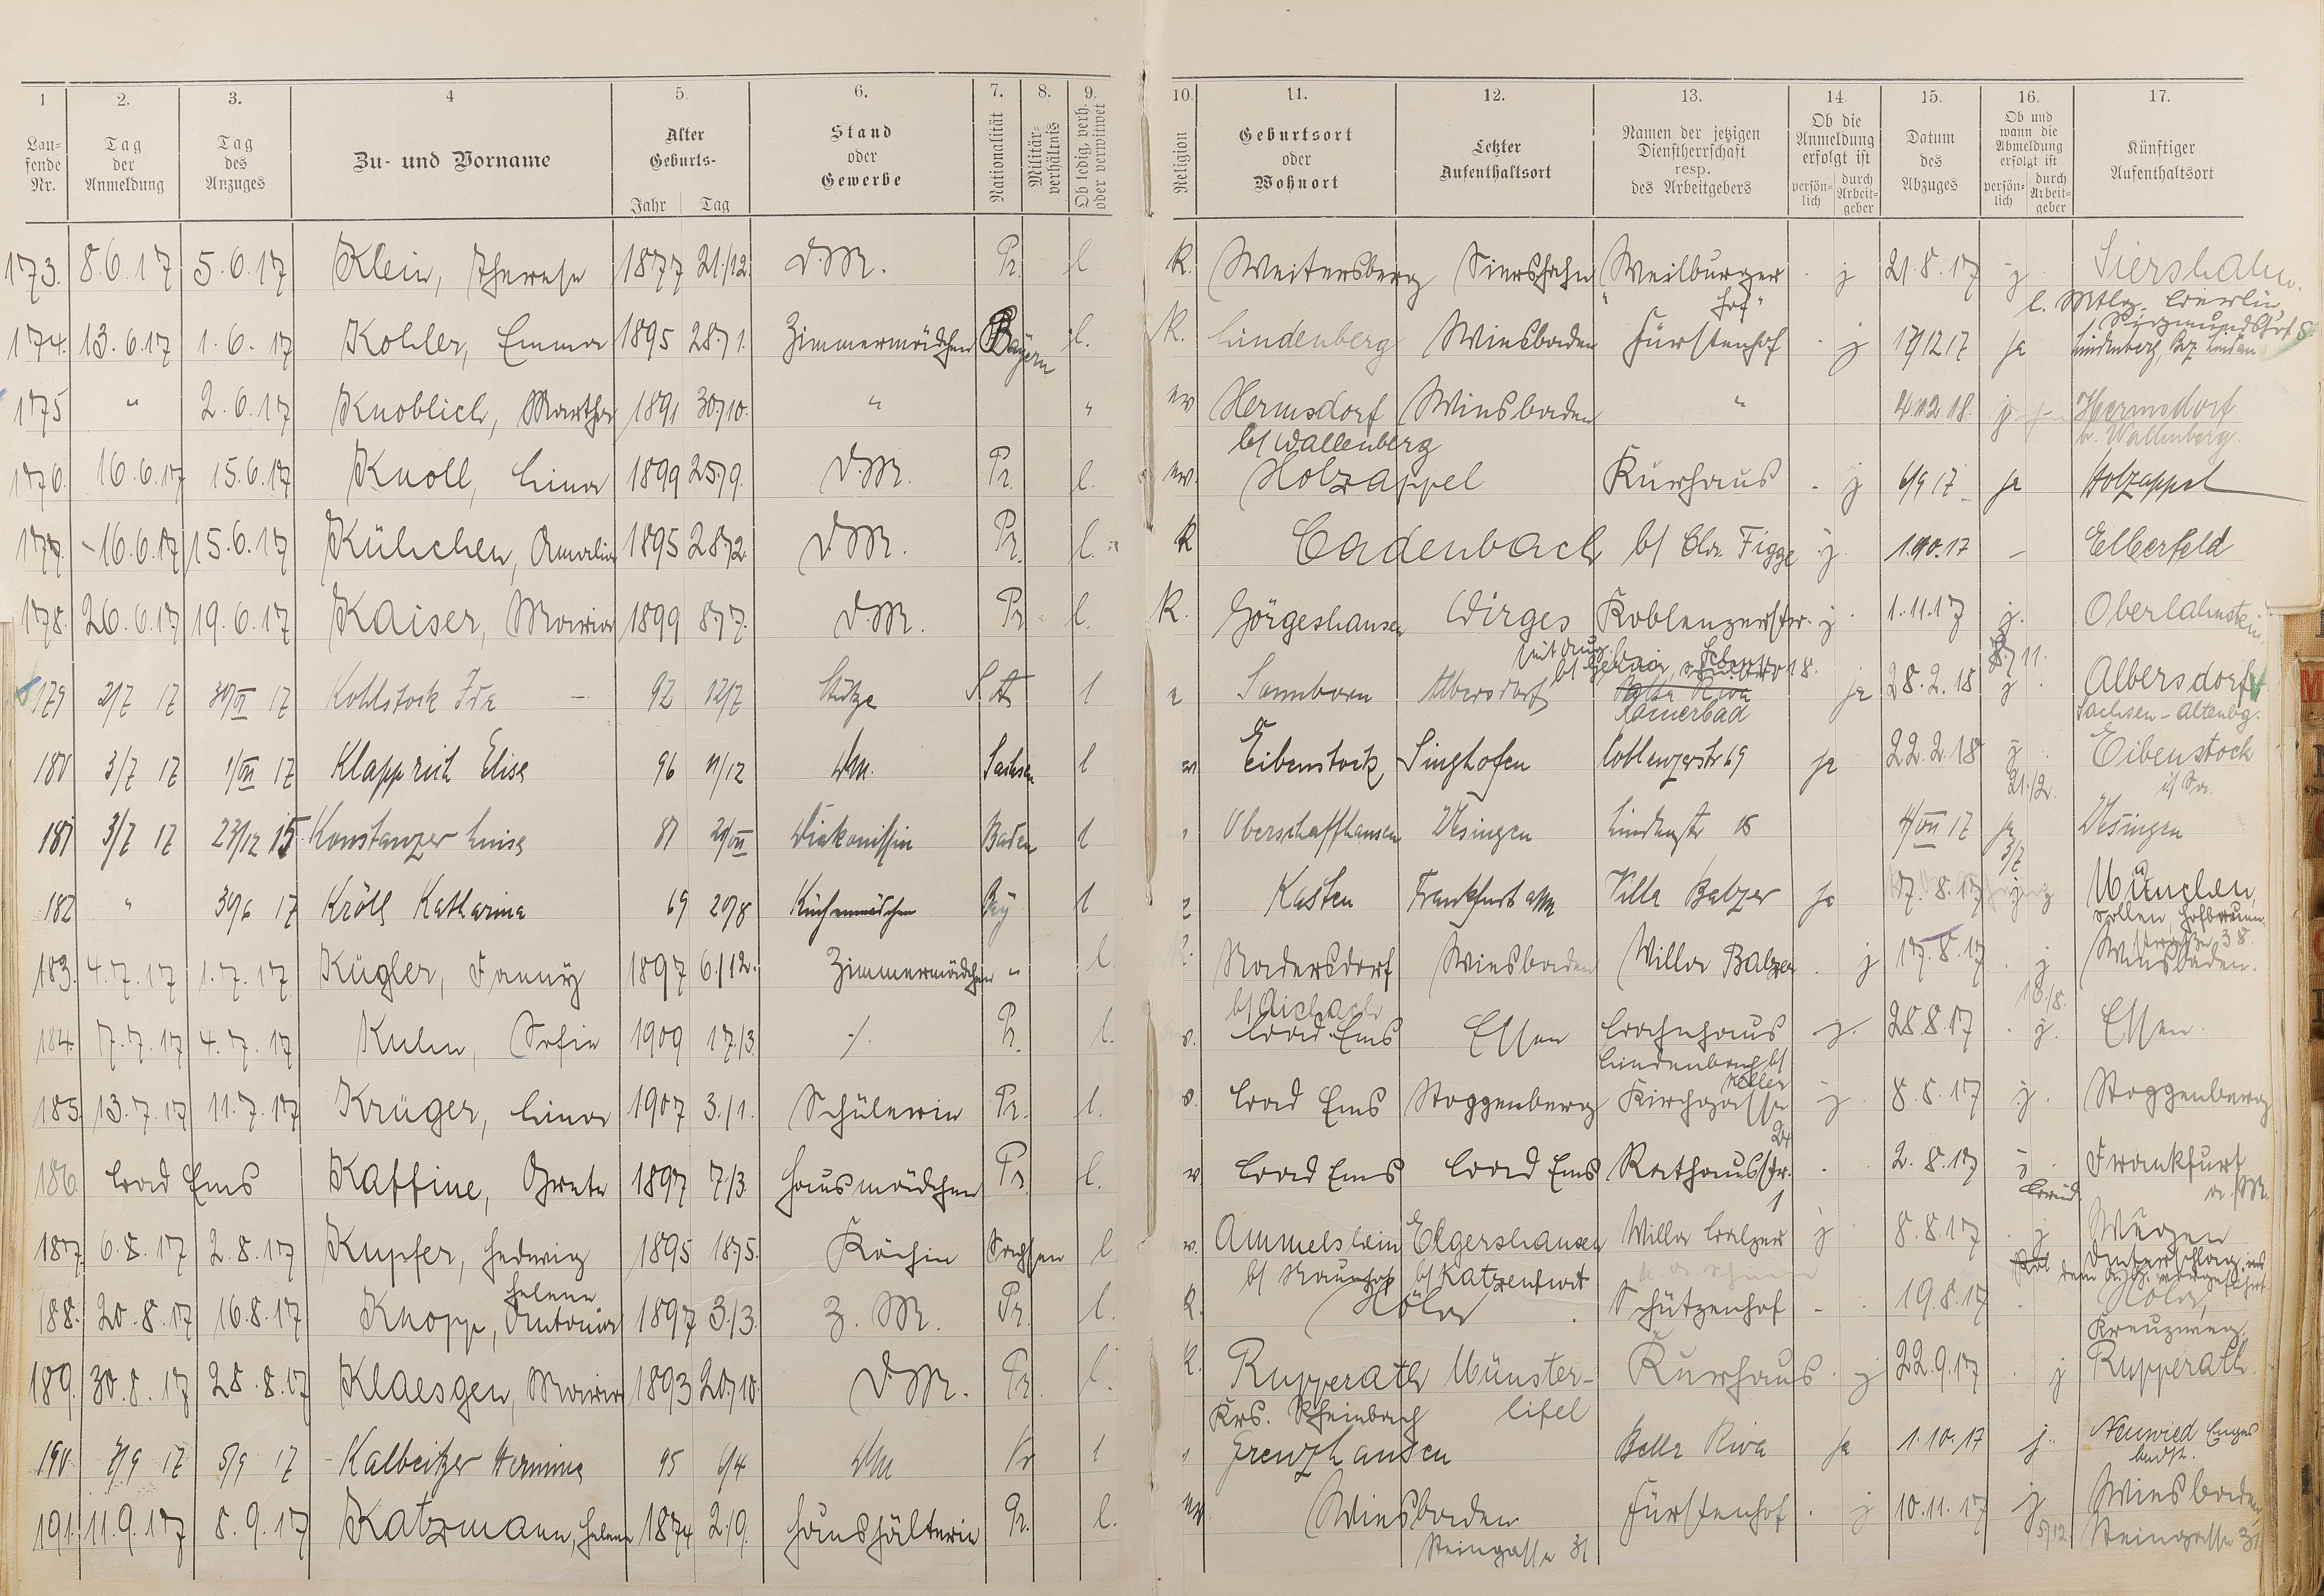 1 2. 3. 4 5. 6. 7. 8. 9. 10. 11. 12. 13. 14. 15. 16. 17.
Lau-fende Nr. Tag der Anmeldung Tag des Anzuges Zu- und Vorname Alter Geburts- Jahr Tag Stand oder Gewerbe Nationalität Militär-verhältnis Ob ledig, verh. oder verwitwet Religion Geburtsort oder Wohnort Letzter Aufenthaltsort Namen der jetzigen Dienstherrschaft resp. des Arbeitgebers Ob die Anmeldung erfolgt ist persön-lich durch Arbeit-geber Datum des Abzuges Ob und wann die Abmeldung erfolgt ist persön-lich durch Arbeit-geber Künftiger Aufenthaltsort
173. 8.6.17 5.6.17 Klein, Therese 1877 21./12. D.M. Pr. l. K. Weitersberg Siershahn Weilburger j 21.8.17 j Siershahn
"Hof"
174. 13.6.17 1.6.17 Kohler, Emma 1895 28./1. Zimmermädchen Bayern l. K. Lindenberg Wiesbaden Fürstenhof j 17/12 17 ja Lindenberg, Bez. Lindau
175 " 2.6.17 Knoblich, Martha 1891 30./10. " " ev Hermsdorf Wiesbaden " Hermsdorf
b/ Wallenberg b. Wallenberg.
176. 16.6.17 15.6.17 Knoll, Lina 1899 25./9. D.M. Pr. l. ev. Holzappel Kurhaus j 6/9 17 ja Holzappel
177. 16.6.17 15.6.17 Külichen, Amalie 1895 28./2. D.M. Pr. l. K Cadenbach b/ Figge j. 1.10.17 – Elberfeld
178. 26.6.17 19.6.17 Kaiser, Maria 1899 8./7. D.M. Pr. l. K. Görgeshausen Wirges Koblenzerstr. j 1.11.17 j. Oberlahnstein
179 2/7 17 30/VI 17 Kohlstock Ida 92 12/7 Stütze S A l Sonnborn Albersdorf Bella Riva ja 28.2.18 j Albersdorf
Römerbad Sachsen-Altenbg.
180 3/7 17 1/VII 17 Klapprich Elise 96 11/12 DM. Sachsen l ev Eibenstock Singhofen Coblenzerstr 69 ja 22.2.18 j Eibenstock
21./2. i/ Sa.
181 3/7 17 23/12 15 Konstanzer Luise 81 Diakonissin Baden l " Oberschaffhausen Usingen 4/VII 17 ja Usingen
3/7
182 " 30/6 17 Kröll Katharina 69 20/8 Küchenmädchen Bay l Kasten Frankfurt a/M Villa Balzer ja 17.8.17 München,
183. 4.7.17 1.7.17 Kügler, Fanny 1897 6./12. Zimmermädchen " l. K. Nadersdorf Wiesbaden Villa Balzer j 17.8.17 j Wiesbaden.
b/ Aichach 18./8.
184. 7.7.17 4.7.17 Kuhn, Sofie 1909 17./3. ./. Pr. l. Bad Ems Essen Bachhaus j. 28.8.17 j. Essen
Lindenbach b/
Keller
185 13.7.17 11.7.17 Krüger, Lina 1907 3./1. Schülerin Pr. l. Bad Ems Roggenberg Kirchgasse j 8.8.17 j. Roggenberg
24
186. Bad Ems Kaffine, Grete 1897 7./3. Hausmädchen Pr. l. ev Bad Ems Bad Ems Rathausstr. 2.8.17 Frankfurt
1 a. M.
187. 6.8.17 2.8.17 Kupfer, Hedwig 1895 18./5. Köchin Sachsen l ev. Ammelshain Elgershausen Villa Balzer j 8.8.17 j Wurzen
b/ Naunhof b/ Katzenfurt
Helene
188. 20.8.17 16.8.17 Knopp, Antonie 1897 3./3. Z. M. Pr. l. K. Höhr Schützenhof 19.8.17 Höhr,
189. 30.8.17 28.8.17 Klaesgen, Maria 1893 20./10. D.M. Pr. l. K. Rupperath Münster- Kurhaus j 22.9.17 j Rupperath.
Krs. Rheinbach Eifel
190 7/9 17 5/9 17 Kalbeitzer Hermine 95 6/4 DM Pr l " Grenzhausen Bella Riva ja 1.10.17 j. Neuwied Engers
191. 11.9.17 8.9.17 Katzmann, Helene 1874 2./9. Haushälterin Pr. l. ev Wiesbaden Fürstenhof j 10.11.17 j Wiesbaden
Steingasse 31 5/12. Steingasse 31